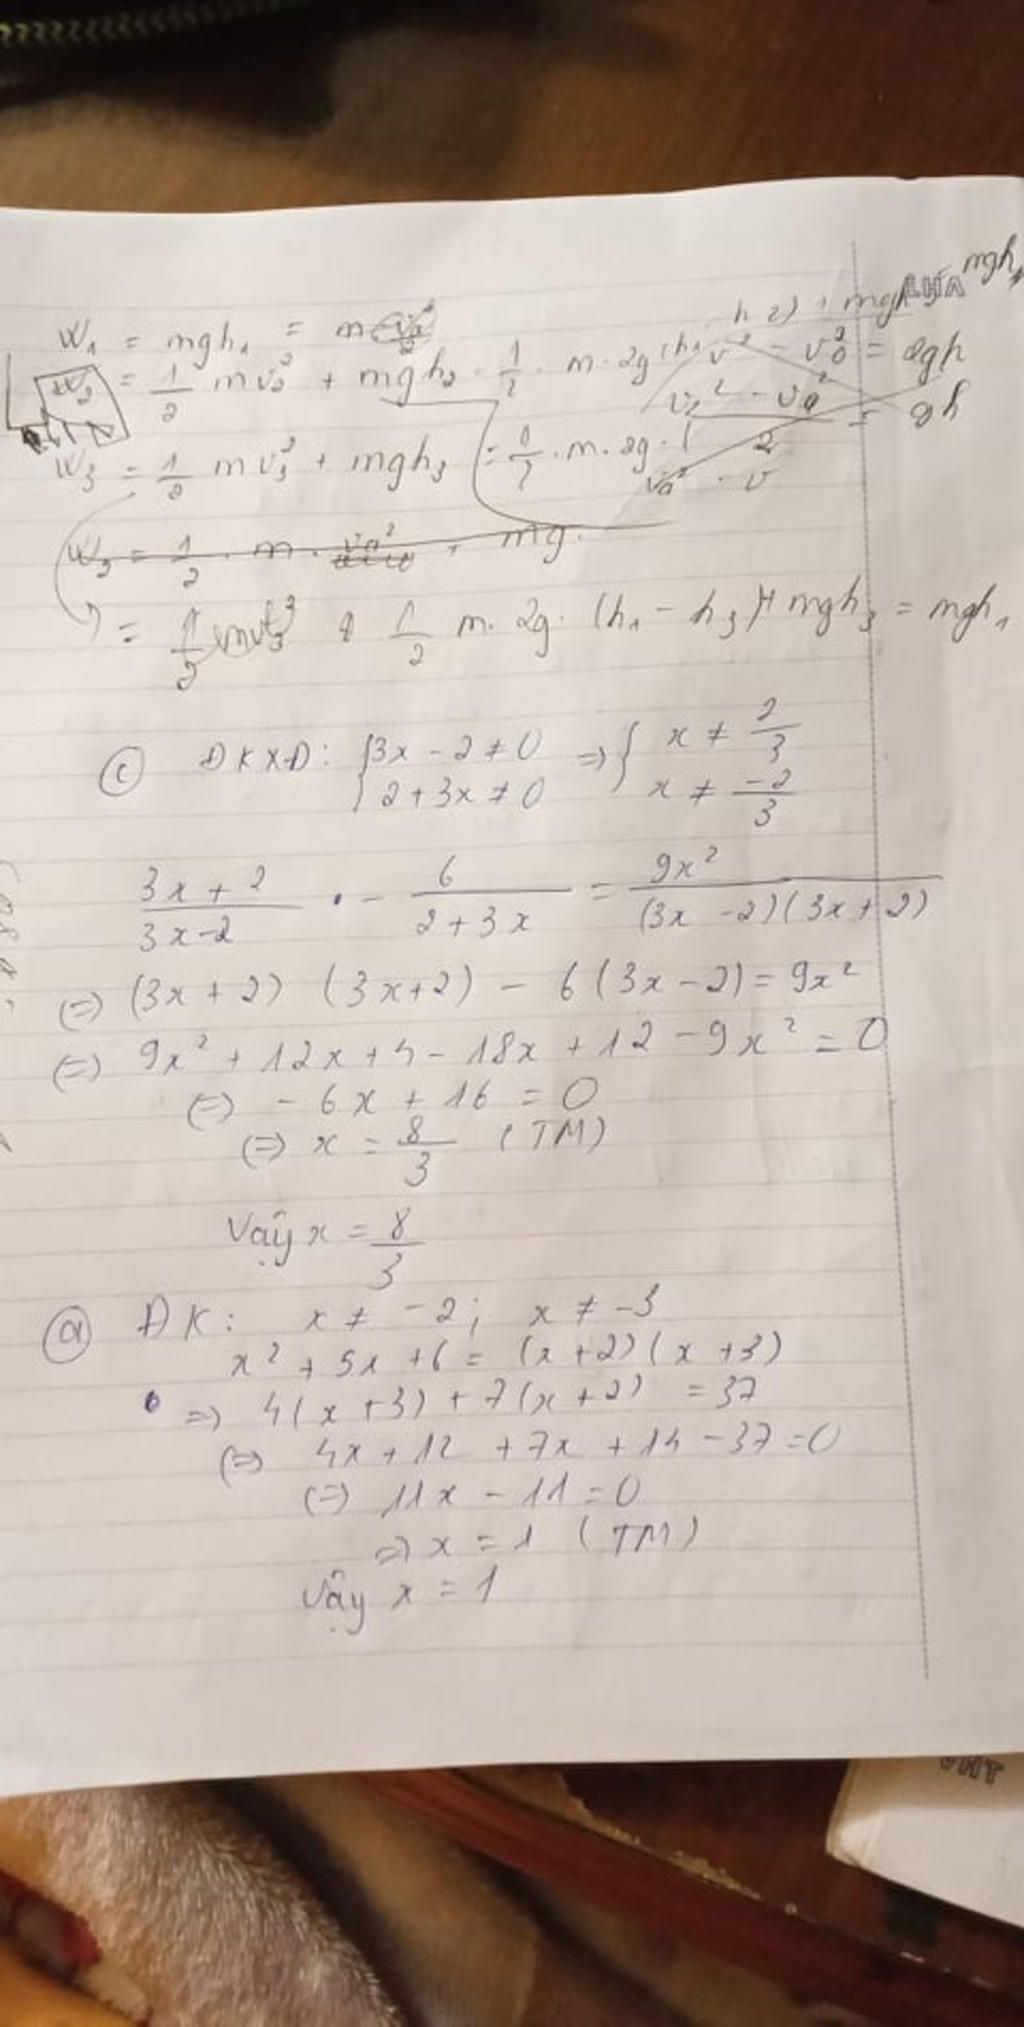 mgh₁
LHA
h₂) + mgh
W₁ = mgh₁ = m
= 1/2 mv₂² + mgh₂ = 1/2 . m . 2g (h₁
v² - v₀² = 2gh
= gh
W₃ = 1/2 mv₃² + mgh₃ = 1/2 . m . 2g . (
W₃ = 1/2 . m . + mg.
= 1/2 mv₃² 1/2 m. 2g. (h₁ - h₃) + mgh₃ = mgh₁
c ĐKXĐ: { 3x - 2 ≠ 0 => { x ≠ 2/3
2 + 3x ≠ 0 x ≠ -2/3
(3x + 2)/(3x - 2) - 6/(2 + 3x) = 9x²/((3x - 2)(3x + 2))
(=) (3x + 2) (3x + 2) - 6(3x - 2) = 9x²
(=) 9x² + 12x + 4 - 18x + 12 - 9x² = 0
(=) - 6x + 16 = 0
(=) x = 8/3 (TM)
Vậy x = 8/3
a ĐK: x ≠ -2; x ≠ -3
x² + 5x + 6 = (x + 2)(x + 3)
=> 4(x + 3) + 7(x + 2) = 37
(=) 4x + 12 + 7x + 14 - 37 = 0
(=) 11x - 11 = 0
=> x = 1 (TM)
Vậy x = 1